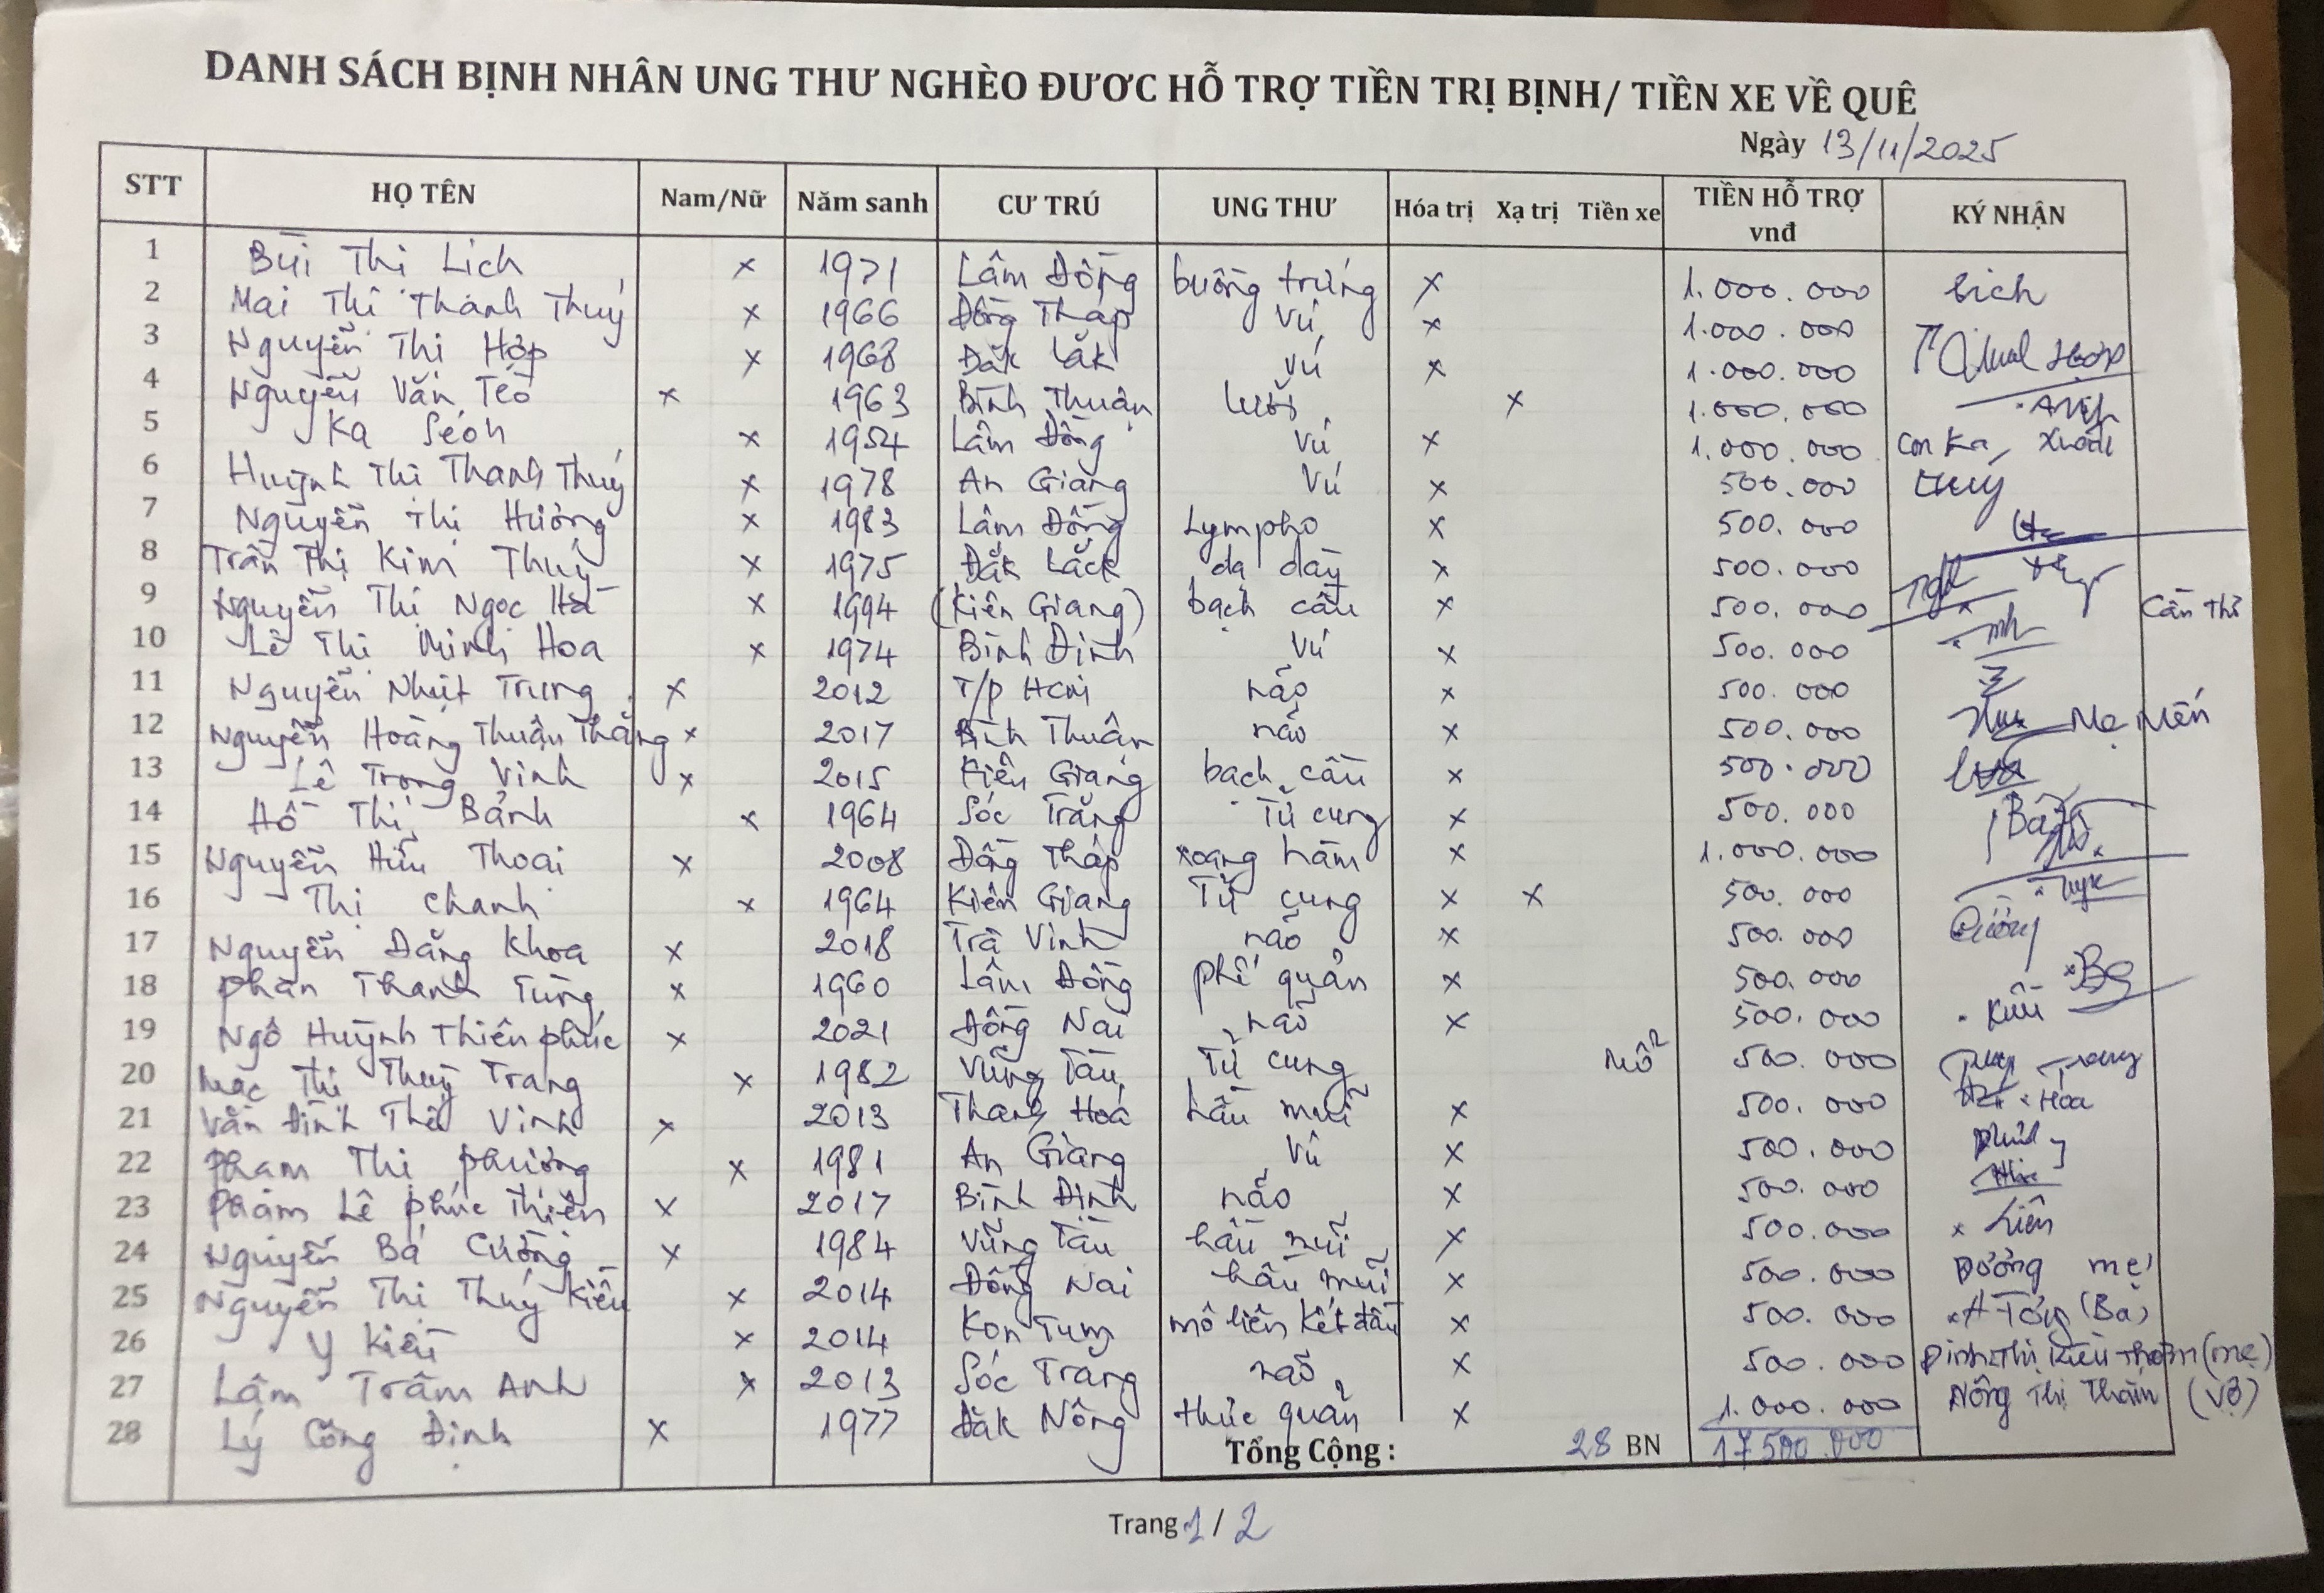 DANH SÁCH BỊNH NHÂN UNG THƯ NGHÈO ĐƯƠC HỖ TRỢ TIỀN TRỊ BỊNH/ TIỀN XE VỀ QUÊ
Ngày 13/11/2025
STT HỌ TÊN Nam/Nữ Năm sanh CƯ TRÚ UNG THƯ Hóa trị Xạ trị Tiền xe TIỀN HỖ TRỢ vnđ KÝ NHẬN
1 Bùi Thị Lich x 1971 Lâm Đồng buồng trứng x 1.000.000 Lich
2 Mai Thị Thanh Thuý x 1966 Đồng Tháp Vú x 1.000.000
3 Nguyễn Thị Hợp x 1968 Đăk Lăk Vú x 1.000.000 Hợp
4 Nguyễn Văn Tèo x 1963 Bình Thuận lưỡi x 1.000.000
5 Ka Séoh x 1954 Lâm Đồng Vú x 1.000.000 con Ka
6 Huỳnh Thị Thanh Thuý x 1978 An Giang Vú x 500.000 Thuý
7 Nguyễn Thị Hương x 1983 Lâm Đồng Lympho x 500.000
8 Trần Thị Kim Thuý x 1975 Đắk Lắck dạ dày x 500.000
9 Nguyễn Thị Ngọc Hà x 1994 (Kiên Giang) bạch cầu x 500.000 Cần Thơ
10 Lê Thị Minh Hoa x 1974 Bình Định Vú x 500.000
11 Nguyễn Nhựt Trung x 2012 T/p Hcm não x 500.000
12 Nguyễn Hoàng Thuận Thắng x 2017 Bình Thuận não x 500.000 Mẹ Mến
13 Lê Trọng Vinh x 2015 Kiên Giang bạch cầu x 500.000
14 Hồ Thị Bảnh x 1964 Sóc Trăng Tử cung x 500.000 Bảnh
15 Nguyễn Hữu Thoại x 2008 Đồng Tháp xoang hàm x 1.000.000
16 Thị Chanh x 1964 Kiên Giang Tử cung x x 500.000
17 Nguyễn Đăng Khoa x 2018 Trà Vinh não x 500.000 Cường
18 Phan Thanh Tùng x 1960 Lâm Đồng phế quản x 500.000
19 Ngô Huỳnh Thiên phúc x 2021 Đồng Nai não x 500.000
20 Mạc Thị Thuỳ Trang x 1982 Vũng Tàu Tử cung mổ 500.000 Trang
21 Văn Đình Thế Vinh x 2013 Thanh Hoá hầu mũi x 500.000 Hoa
22 Phạm Thị phương x 1981 An Giang Vú x 500.000
23 Phạm Lê phúc Thiên x 2017 Bình Định não x 500.000
24 Nguyễn Bá Cường x 1984 Vũng Tàu hầu mũi x 500.000 x Liên
25 Nguyễn Thị Thuý Kiều x 2014 Đồng Nai hầu mũi x 500.000 mẹ
26 Y Kiều x 2014 Kon Tum mô liên kết đầu x 500.000 (Ba)
27 Lâm Trâm Anh x 2013 Sóc Trăng não x 500.000 Đinh Thị Kiều Thơm (mẹ)
28 Lý Công Định x 1977 Đăk Nông thực quản x 1.000.000 Nông Thị Thắm (Vợ)
Tổng Cộng : 28 BN 17 500.000
Trang 1 / 2